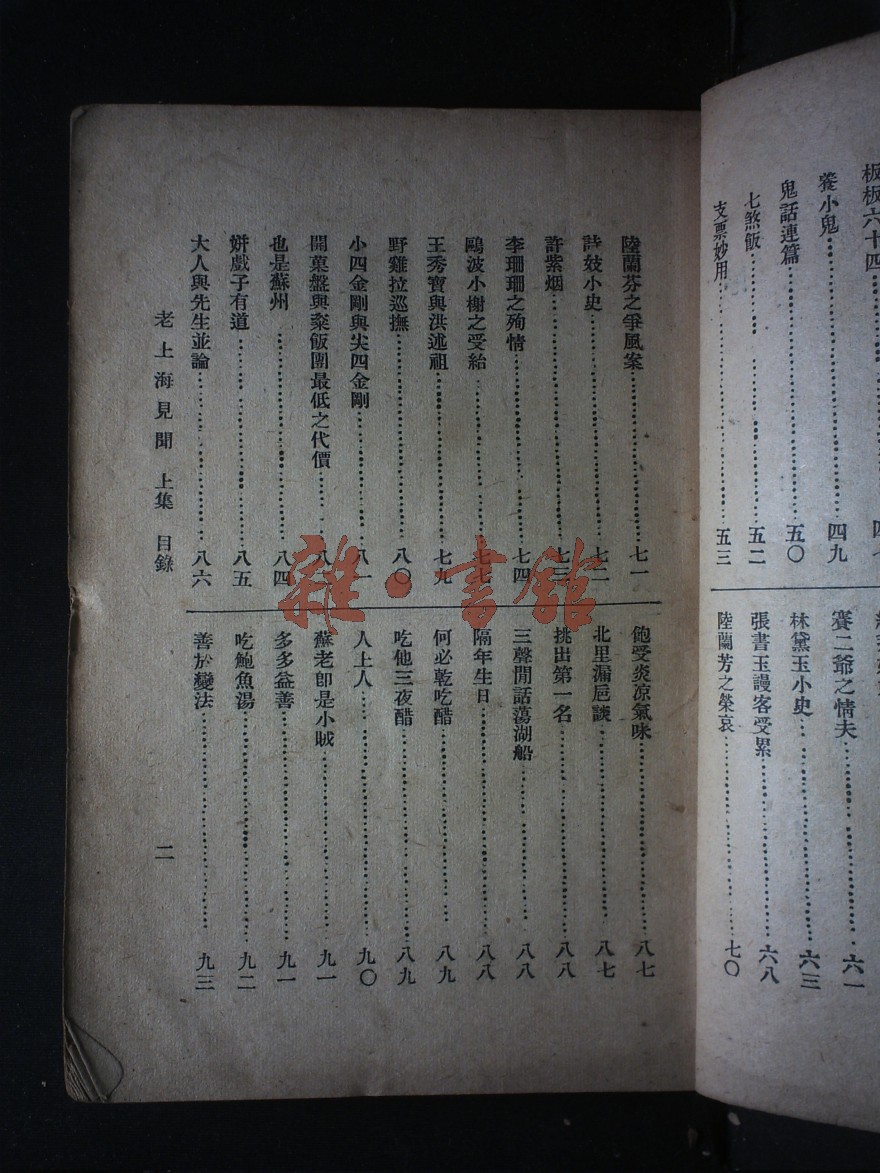 板板六十四
養小鬼 四九
鬼話連篇 五〇
七煞飯 五二
支票妙用 五三
賽二爺之情夫 六一
林黛玉小史 六三
張書玉謾客受累 六八
陸蘭芳之榮哀 七〇
陸蘭芬之爭風案 七一
詩妓小史 七二
許紫烟 七三
李珊珊之殉情 七四
鷗波小榭之受給 七七
王秀寶與洪述祖 七九
野雞拉巡撫 八〇
小四金剛與尖四金剛 八一
開菓盤與粢飯團最低之代價
也是蘇州 八四
姘戲子有道 八五
大人與先生並論 八六
飽受炎涼氣味 八七
北里漏巵談 八七
挑出第一名 八八
三聲閒話蕩湖船 八八
隔年生日 八八
何必乾吃醋 八九
吃他三夜醋 八九
人上人 九〇
蘇老卽是小賊 九一
多多益善 九一
吃鮑魚湯 九二
善於變法 九三
老上海見聞 上集 目錄 二
雜·書館